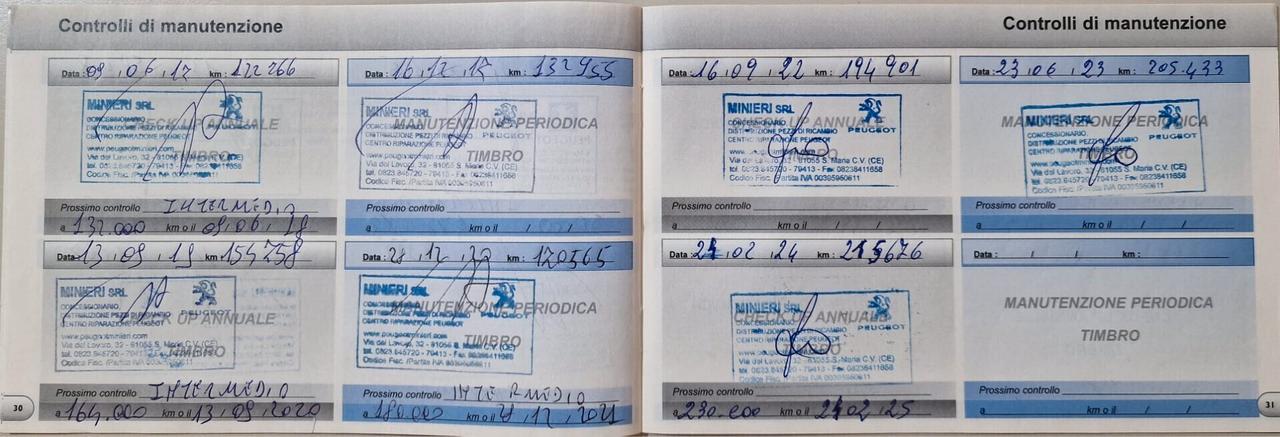 Controlli di manutenzione
Data: 09 / 06 / 17 km: 122766
MINIERI SRL
CONCESSIONARIO
DISTRIBUZIONE PEZZI DI RICAMBIO
CENTRO RIPARAZIONE PEUGEOT
PEUGEOT
CHECK UP ANNUALE
TIMBRO
www.peugeotminieri.com
Via del Lavoro, 32 - 81055 S. Maria C.V. (CE)
tel. 0823.845720 - 79413 - Fax 08238411658
Codice Fisc. /Partita IVA 00395950611
Prossimo controllo INTERMEDIO
a 132.000 km o il 09/06/18
Data: 16/12/17 km: 132955
MINIERI SRL
MANUTENZIONE PERIODICA
DISTRIBUZIONE PEZZI DI RICAMBIO
CENTRO RIPARAZIONE PEUGEOT
PEUGEOT
TIMBRO
www.peugeotminieri.com
Via del Lavoro, 32 - 81055 S. Maria C.V. (CE)
tel. 0823.845720 - 79413 - Fax 08238411658
Codice Fisc. /Partita IVA 00395950611
Prossimo controllo
a km o il / /
Data: 13/09/19 km: 154758
MINIERI SRL
CONCESSIONARIO
DISTRIBUZIONE PEZZI DI RICAMBIO
CENTRO RIPARAZIONE PEUGEOT
PEUGEOT
CHECK UP ANNUALE
TIMBRO
www.peugeotminieri.com
Via del Lavoro, 32 - 81055 S. Maria C.V. (CE)
tel. 0823.845720 - 79413
Codice Fisc. /Partita IVA 00395950611
Prossimo controllo INTERMEDIO
a 164.000 km o il 13/09/2020
30
Data: 12 km: 170565
MINIERI SRL
CONCESSIONARIO
MANUTENZIONE PERIODICA
DISTRIBUZIONE PEZZI DI RICAMBIO
CENTRO RIPARAZIONE PEUGEOT
TIMBRO
www.peugeotminieri.com
Via del Lavoro, 32 - 81055 S. Maria C.V. (CE)
tel. 0823.845720 - 79413 - Fax 08238411658
Codice Fisc. /Partita IVA 00395950611
Prossimo controllo INTERMEDIO
a 180.000 km o il 12
Controlli di manutenzione
Data: 16/09/22 km: 194901
MINIERI SRL
CONCESSIONARIO
DISTRIBUZIONE PEZZI DI RICAMBIO
CENTRO RIPARAZIONE PEUGEOT
PEUGEOT
Via del Lavoro, 32 - 81055 S. Maria C.V. (CE)
tel. 0823.845720 - 79413 - Fax 08238411658
Codice Fisc. /Partita IVA 00395950611
Prossimo controllo
a km o il / /
Data: 23/06/23 km: 205.433
MINIERI SRL
MANUTENZIONE PERIODICA
CONCESSIONARIO
DISTRIBUZIONE PEZZI DI RICAMBIO
CENTRO RIPARAZIONE PEUGEOT
PEUGEOT
TIMBRO
Via del Lavoro, 32 - 81055 S. Maria C.V. (CE)
tel. 0823.845720 - 79413 - Fax 08238411658
Codice Fisc. /Partita IVA 00395950611
Prossimo controllo
a km o il / /
Data: 02/24 km: 215676
MINIERI SRL
CHECK UP ANNUALE
CONCESSIONARIO
DISTRIBUZIONE PEZZI DI RICAMBIO
CENTRO RIPARAZIONE PEUGEOT
PEUGEOT
TIMBRO
Via del Lavoro, 32 - 81055 S. Maria C.V. (CE)
tel. 0823.845720 - 79413 - Fax 08238411658
Codice Fisc. /Partita IVA 00395950611
Prossimo controllo
a 230.000 km o il 02/25
Data: / / km:
MANUTENZIONE PERIODICA
TIMBRO
Prossimo controllo
a km o il / /
31